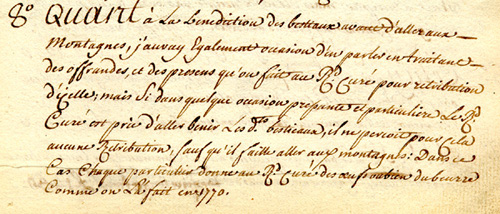 8° Quant à La Benediction des bestiaux avant d'aller aux
Montagnes, j'auray Egalement occasion d'en parler en traitant
des offrandes, et des presens qu'on fait au Rd Curé pour retribution
d'icelle; mais Si dans quelque occasion pressante et particuliere Le Rd
Curé est prié d'aller benir Les dts bestiaux, il ne percoit pour Cela
aucune Retribution, sauf qu'il faille aller aux montagnes: Dans ce
Cas Chaque particulier donne au Rd Curé des œufs ou bien du beurre
Comme on L'a fait en 1770.